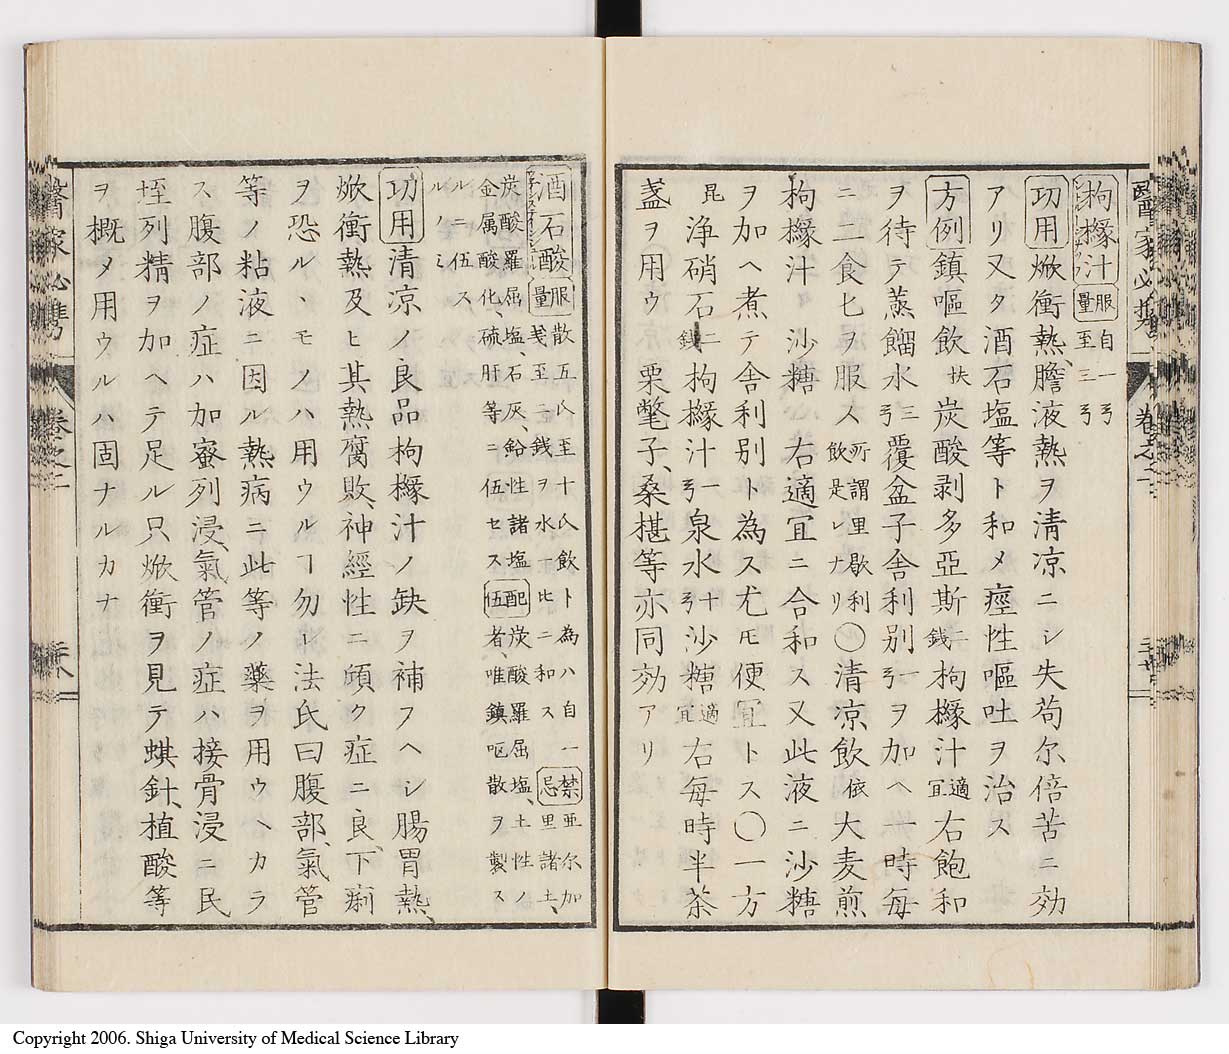 醫家必携 卷之二
枸櫞汁 服量 自一弓至三弓
功用 焮衝熱、膽液熱ヲ清凉ニシ失苟尔倍苦ニ効
アリ又タ酒石塩等ト和メ痙性嘔吐ヲ治ス
方例 鎮嘔飲 扶 炭酸剥多亞斯 二錢 枸櫞汁 適宜 右飽和
ヲ待テ蒸餾水 三弓 覆盆子舎利別 一弓 ヲ加ヘ一時毎
ニ二食匕ヲ服ス 所謂里歇利飲是レナリ ○清凉飲 依 大麦煎
枸櫞汁 沙糖 右適宜ニ合和ス又此液ニ沙糖
ヲ加ヘ煮テ舎利別ト為ス尤モ便宜トス○一方
昆 浄硝石 二錢 枸櫞汁 一弓 泉水 十弓 沙糖 適宜 右毎時半茶
盞ヲ用ウ 覆盆子、桑椹等亦同効アリ
酒石酸 服量 散五氏至十氏飲ト為ハ自一
戔至二錢ヲ水一正比ニ和ス 禁忌 亜尔加里諸土、
炭酸羅屈塩、石灰、鉛性諸塩 配伍 炭酸羅屈塩、土性ノ
金属酸化、硫肝等ニ伍セス 者、唯鎮呕散ヲ製ス
ルニ伍ス
ルノミ
功用 清凉ノ良品枸櫞汁ノ缺ヲ補フヘシ腸胃熱、
焮衝熱及ヒ其熱腐敗、神經性ニ傾ク症ニ良、下痢
ヲ恐ル、モノハ用ウルヿ勿レ法氏曰腹部、氣管
等ノ粘液ニ因ル熱病ニ此等ノ藥ヲ用ウヘカラ
ス腹部ノ症ハ加蜜列浸、氣管ノ症ハ接骨浸ニ民
垤列精ヲ加ヘテ足ル只焮衝ヲ見テ蜞針、植酸等
ヲ概メ用ウルハ固ナルカナ
醫家必携 卷之二